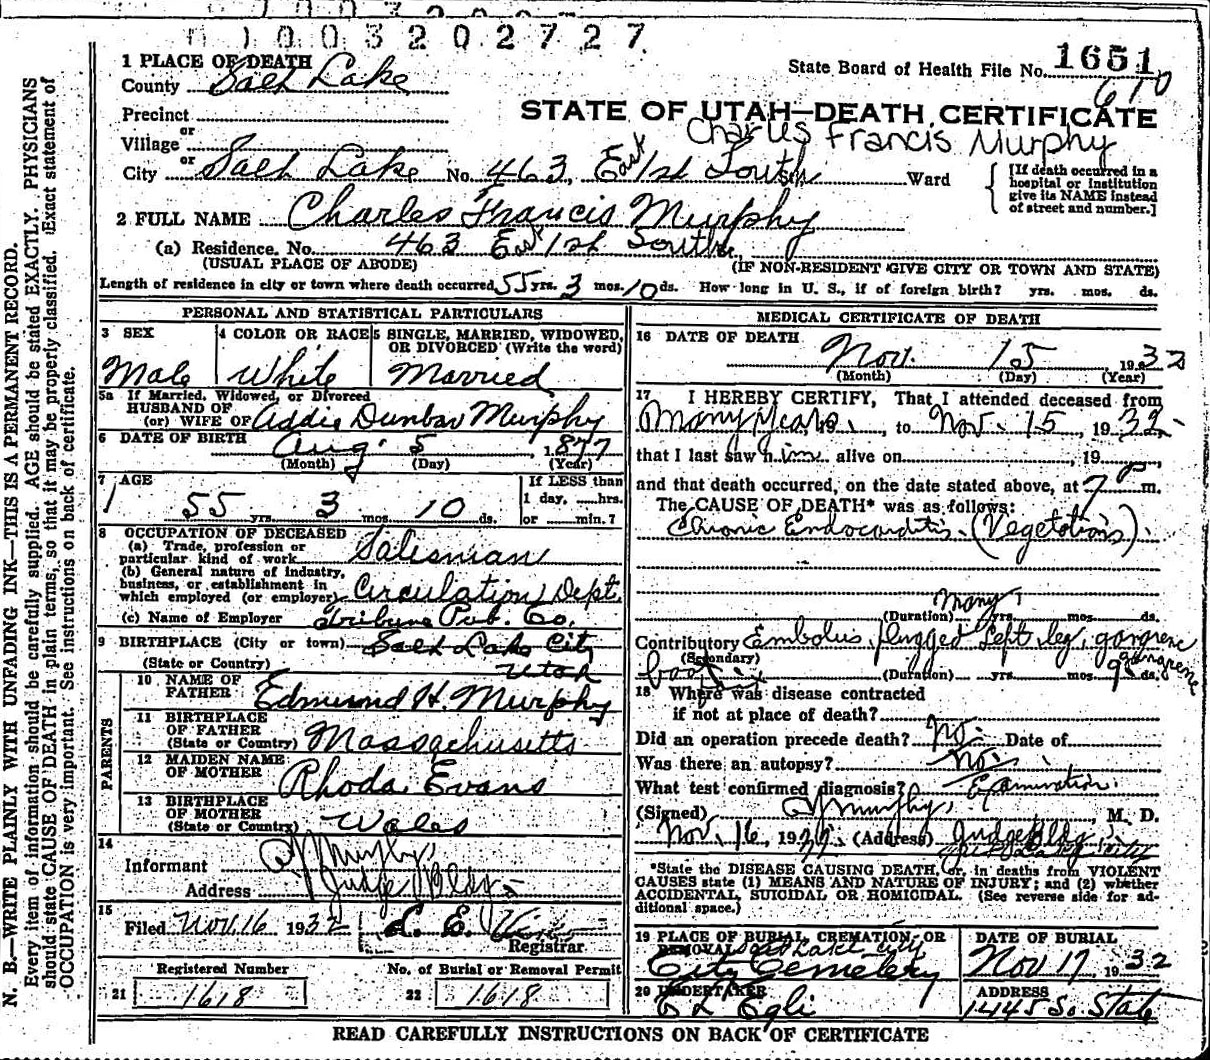 1003202727
1 PLACE OF DEATH
County Salt Lake
State Board of Health File No. 1651
610
Precinct
STATE OF UTAH—DEATH CERTIFICATE
Charles Francis Murphy
or
Village
or
City Salt Lake No. 463, East 1st South Ward
[If death occurred in a hospital or institution give its NAME instead of street and number.]
2 FULL NAME Charles Francis Murphy
(a) Residence. No. 463 East 1st South
(USUAL PLACE OF ABODE) (IF NON-RESIDENT GIVE CITY OR TOWN AND STATE)
Length of residence in city or town where death occurred 55 yrs. 3 mos. 10 ds. How long in U. S., if of foreign birth? yrs. mos. ds.
PERSONAL AND STATISTICAL PARTICULARS
3 SEX
Male
4 COLOR OR RACE
White
5 SINGLE, MARRIED, WIDOWED,
OR DIVORCED (Write the word)
Married
5a If Married, Widowed, or Divorced
HUSBAND OF
(or) WIFE OF Addie Dunbar Murphy
6 DATE OF BIRTH
Aug. 5 1877
(Month) (Day) (Year)
7 AGE
55 yrs. 3 mos. 10 ds.
If LESS than
1 day, hrs.
or min.?
8 OCCUPATION OF DECEASED
(a) Trade, profession or
particular kind of work Salesman
(b) General nature of industry,
business, or establishment in
which employed (or employer) Circulation Dept.
(c) Name of Employer Tribune Pub. Co.
9 BIRTHPLACE (City or town) Salt Lake City
(State or Country) Utah
PARENTS
10 NAME OF
FATHER Edmund H. Murphy
11 BIRTHPLACE
OF FATHER
(State or Country) Massachusetts
12 MAIDEN NAME
OF MOTHER Rhoda Evans
13 BIRTHPLACE
OF MOTHER
(State or Country) Wales
14
Informant Murphy
Address Judge Bldg.
15
Filed Nov. 16 1932 L. E.
Registrar
Registered Number
21 1618
No. of Burial or Removal Permit
22 1618
MEDICAL CERTIFICATE OF DEATH
16 DATE OF DEATH
Nov. 15 1932
(Month) (Day) (Year)
17 I HEREBY CERTIFY, That I attended deceased from
Many Years, 19, to Nov. 15, 1932
that I last saw him alive on, 19
and that death occurred, on the date stated above, at 7 P m.
The CAUSE OF DEATH* was as follows:
Chronic Endocarditis. (Vegetations)
(Duration) Many yrs. mos. ds.
Contributory Embolus plugged left leg, gangrene
(Secondary)
foot gangrene
(Duration) yrs. mos. 9 ds.
18 Where was disease contracted
if not at place of death?
Did an operation precede death? No. Date of
Was there an autopsy? No.
What test confirmed diagnosis? Examination.
(Signed) Murphy, M. D.
Nov. 16, 1932 (Address) Judge Bldg.
Salt Lake City
*State the DISEASE CAUSING DEATH, or, in deaths from VIOLENT
CAUSES state (1) MEANS AND NATURE OF INJURY; and (2) whether
ACCIDENTAL, SUICIDAL OR HOMICIDAL. (See reverse side for ad-
ditional space.)
19 PLACE OF BURIAL, CREMATION, OR
REMOVAL Salt Lake City
City Cemetery
DATE OF BURIAL
Nov 17, 1932
20 UNDERTAKER
E L Egli
ADDRESS
1445 So. State
READ CAREFULLY INSTRUCTIONS ON BACK OF CERTIFICATE
N. B.—WRITE PLAINLY WITH UNFADING INK—THIS IS A PERMANENT RECORD.
Every item of information should be carefully supplied. AGE should be stated EXACTLY. PHYSICIANS
should state CAUSE OF DEATH in plain terms, so that it may be properly classified. Exact statement of
OCCUPATION is very important. See instructions on back of certificate.